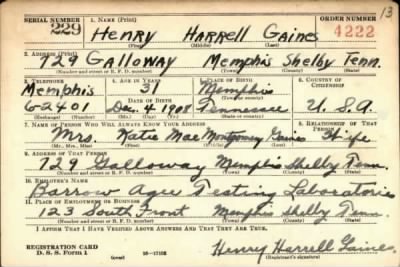 13
SERIAL NUMBER 1. NAME (Print) ORDER NUMBER
229 HENRY HARRELL GAINES 4222
(First) (Middle) (Last)
2. ADDRESS (Print)
729 GALLOWAY MEMPHIS SHELBY TENN.
(Number and street or R. F. D. number) (Town) (County) (State)
3. TELEPHONE 4. AGE IN YEARS 5. PLACE OF BIRTH 6. COUNTRY OF CITIZENSHIP
Memphis 31 Memphis
DATE OF BIRTH
6-2401 Dec. 4, 1908 Tennessee U.S.A.
(Exchange) (Number) (Mo.) (Day) (Yr.) (State or country)
7. NAME OF PERSON WHO WILL ALWAYS KNOW YOUR ADDRESS 8. RELATIONSHIP OF THAT PERSON
Mrs. Katie Mae Montgomery Gaines Wife
(Mr., Mrs., Miss) (First) (Middle) (Last)
9. ADDRESS OF THAT PERSON
729 Galloway Memphis Shelby Tenn.
(Number and street or R. F. D. number) (Town) (County) (State)
10. EMPLOYER'S NAME
Barrow Agee Testing Laboratories
11. PLACE OF EMPLOYMENT OR BUSINESS
123 South Front Memphis Shelby Tenn.
(Number and street or R. F. D. number) (Town) (County) (State)
I AFFIRM THAT I HAVE VERIFIED ABOVE ANSWERS AND THAT THEY ARE TRUE.
REGISTRATION CARD Henry Harrell Gaines
D. S. S. Form 1 (over) 16-17105 (Registrant's signature)